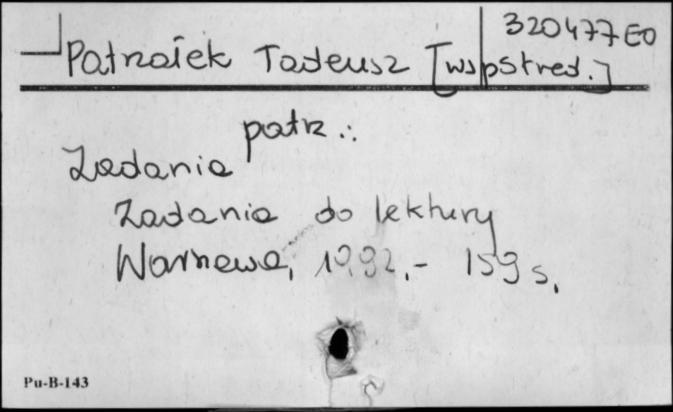 320477 EO
Patrzałek Tadeusz [współred.]
patrz.:
Zadania
Zadania do lektury
Warszawa, 1992.- 159 s.
Pu-B-143